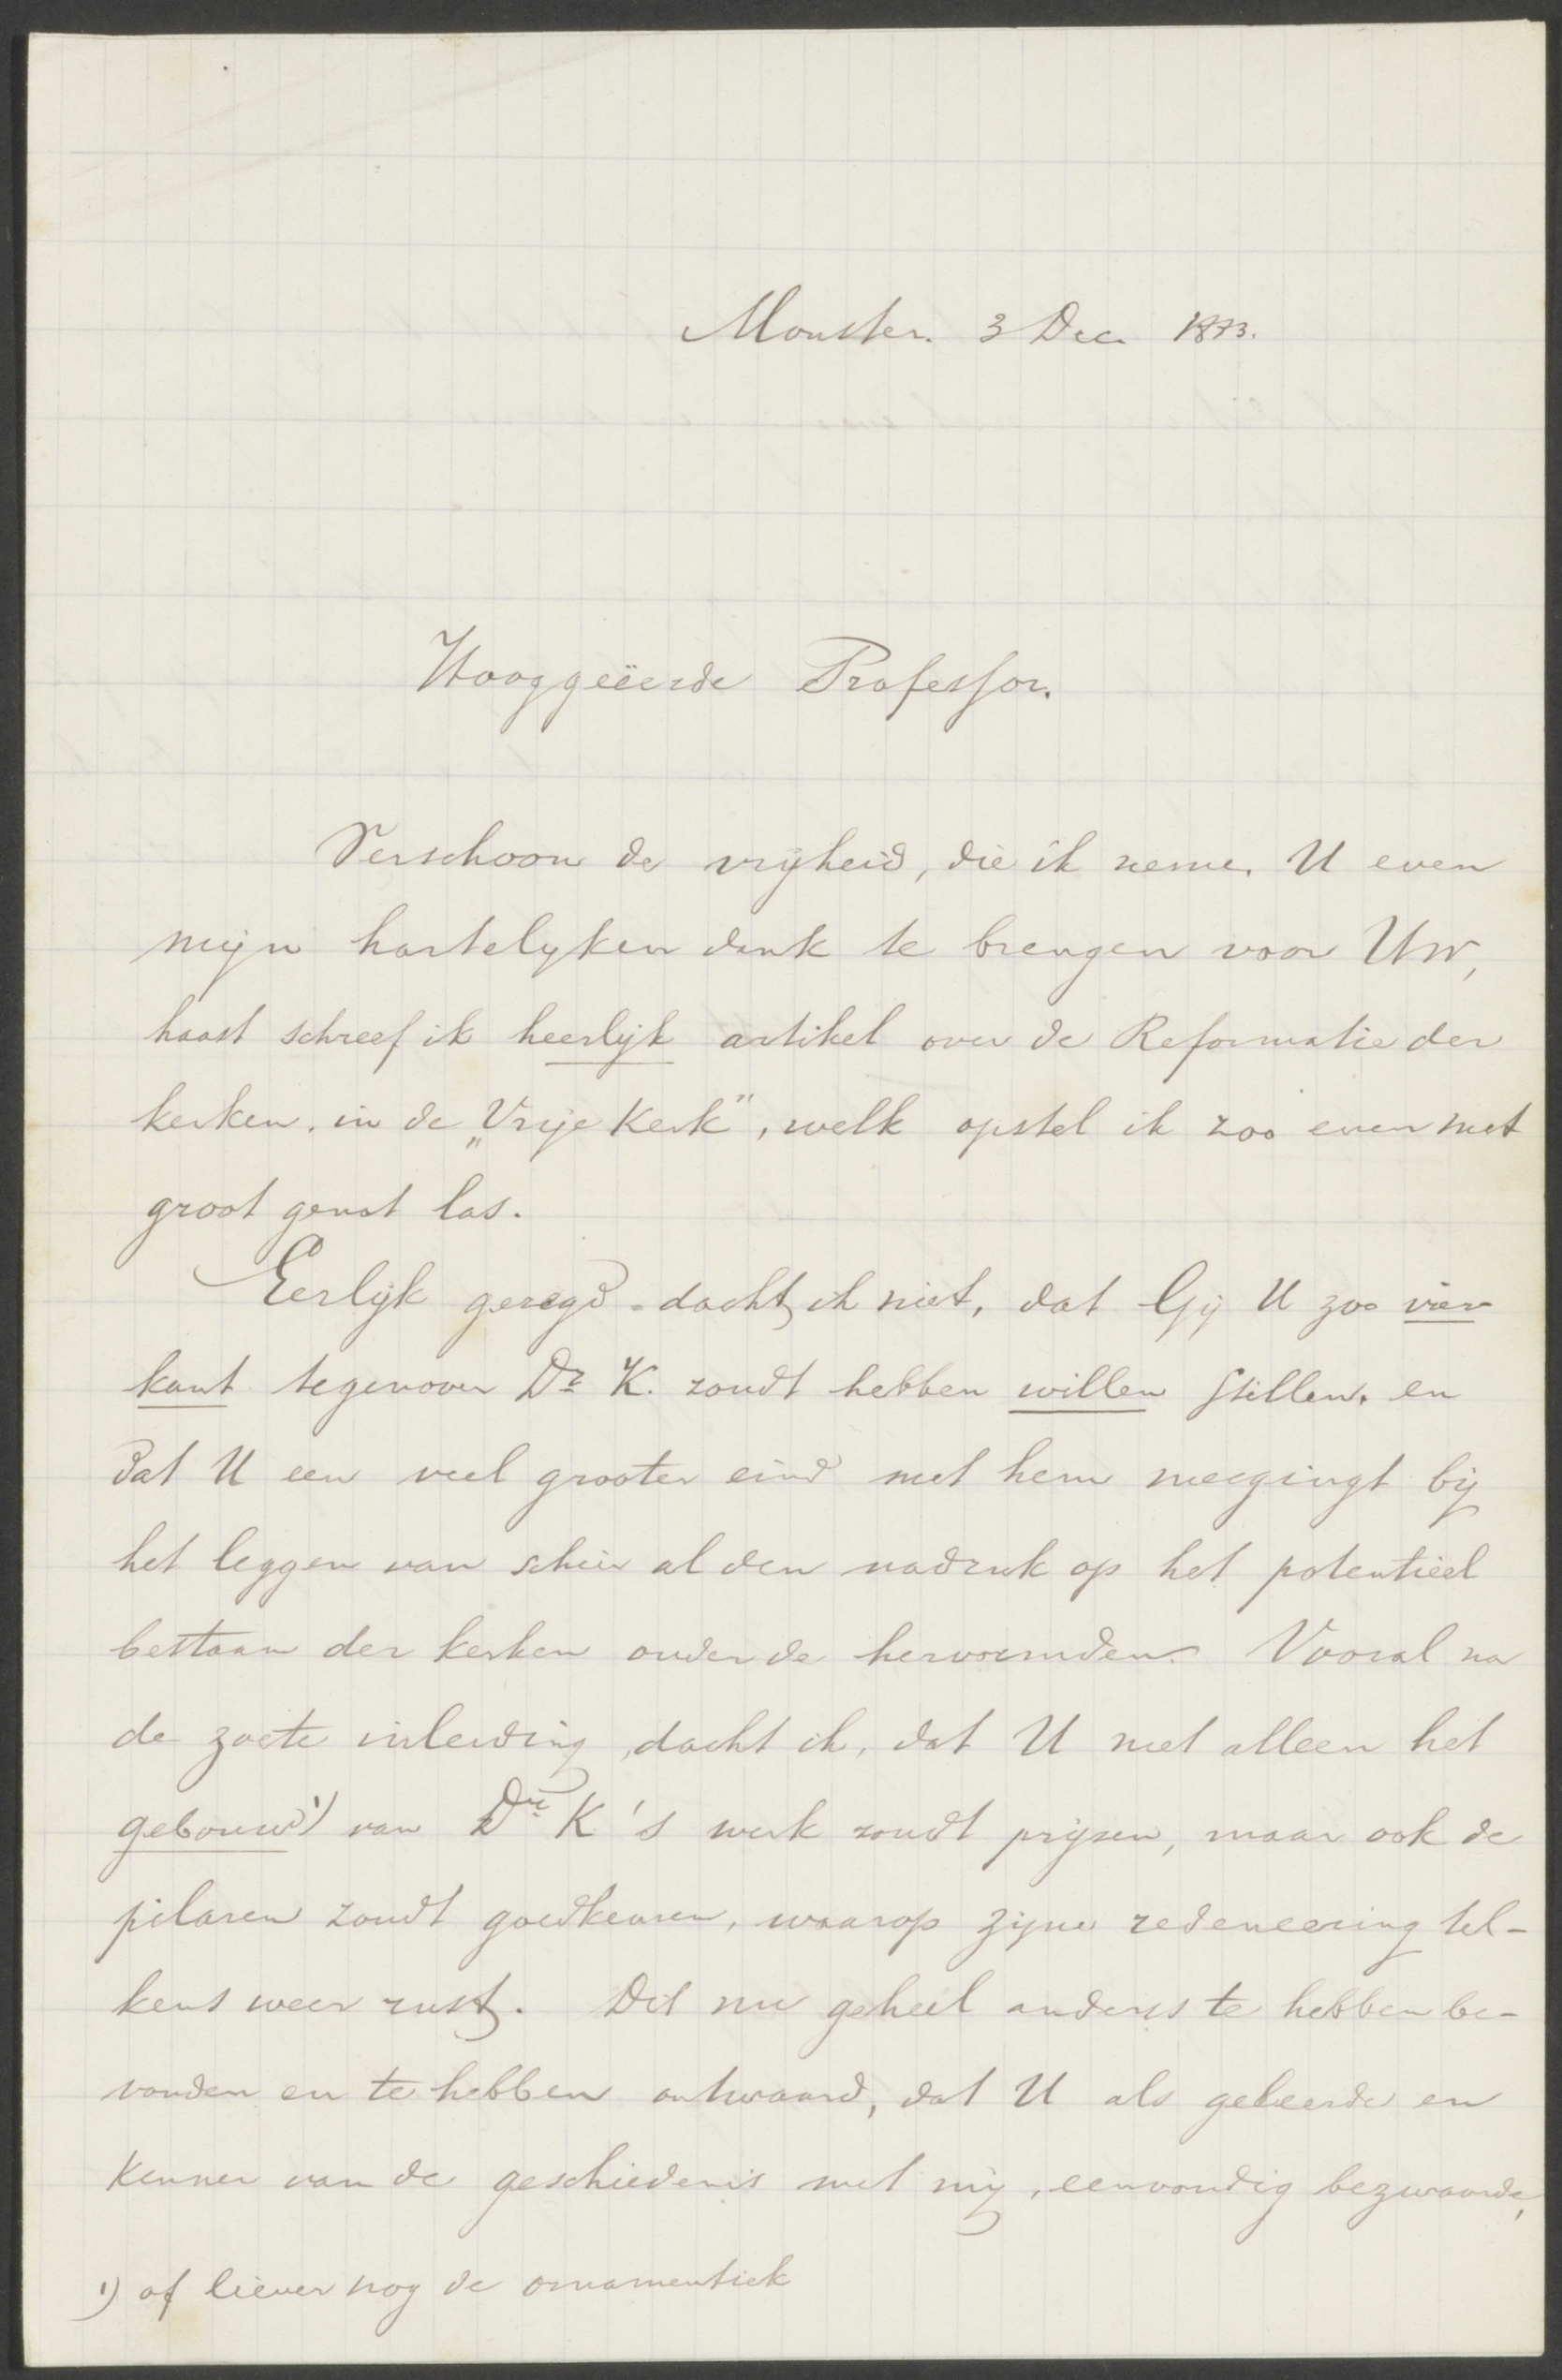 Monster. 3 Dec. 1873.
Hooggeëerde Professor.
Verschoon de vrijheid, die ik neme, U even
mijn hartelyken dank te brengen voor Uw,
haast schreef ik heerlijk artikel over de Reformatie der
kerken. in de „Vrije Kerk", welk opstel ik zoo even met
groot genot las.
Eerlijk gezegd dacht ik niet, dat Gij U zoo vier
kant tegenover Dr K. zoudt hebben willen stellen. en
dat U een veel grooter eind met hem meegingt bij
het leggen van schier al den nadruk op het potentieel
bestaan der kerken onder de hervormden. Vooral na
de zoete inleiding, dacht ik, dat U niet alleen het
gebouw 1) van Dr K's werk zoudt prijzen, maar ook de
pilaren zoudt goedkeuren, waarop zijne redeneering tel-
kens weer rust. Dit nu geheel anders te hebben be-
vonden en te hebben ontwaard, dat U als geleerde en
kenner van de geschiedenis met mij, eenvoudig bezwaarde,
1) of liever nog de ornamentiek